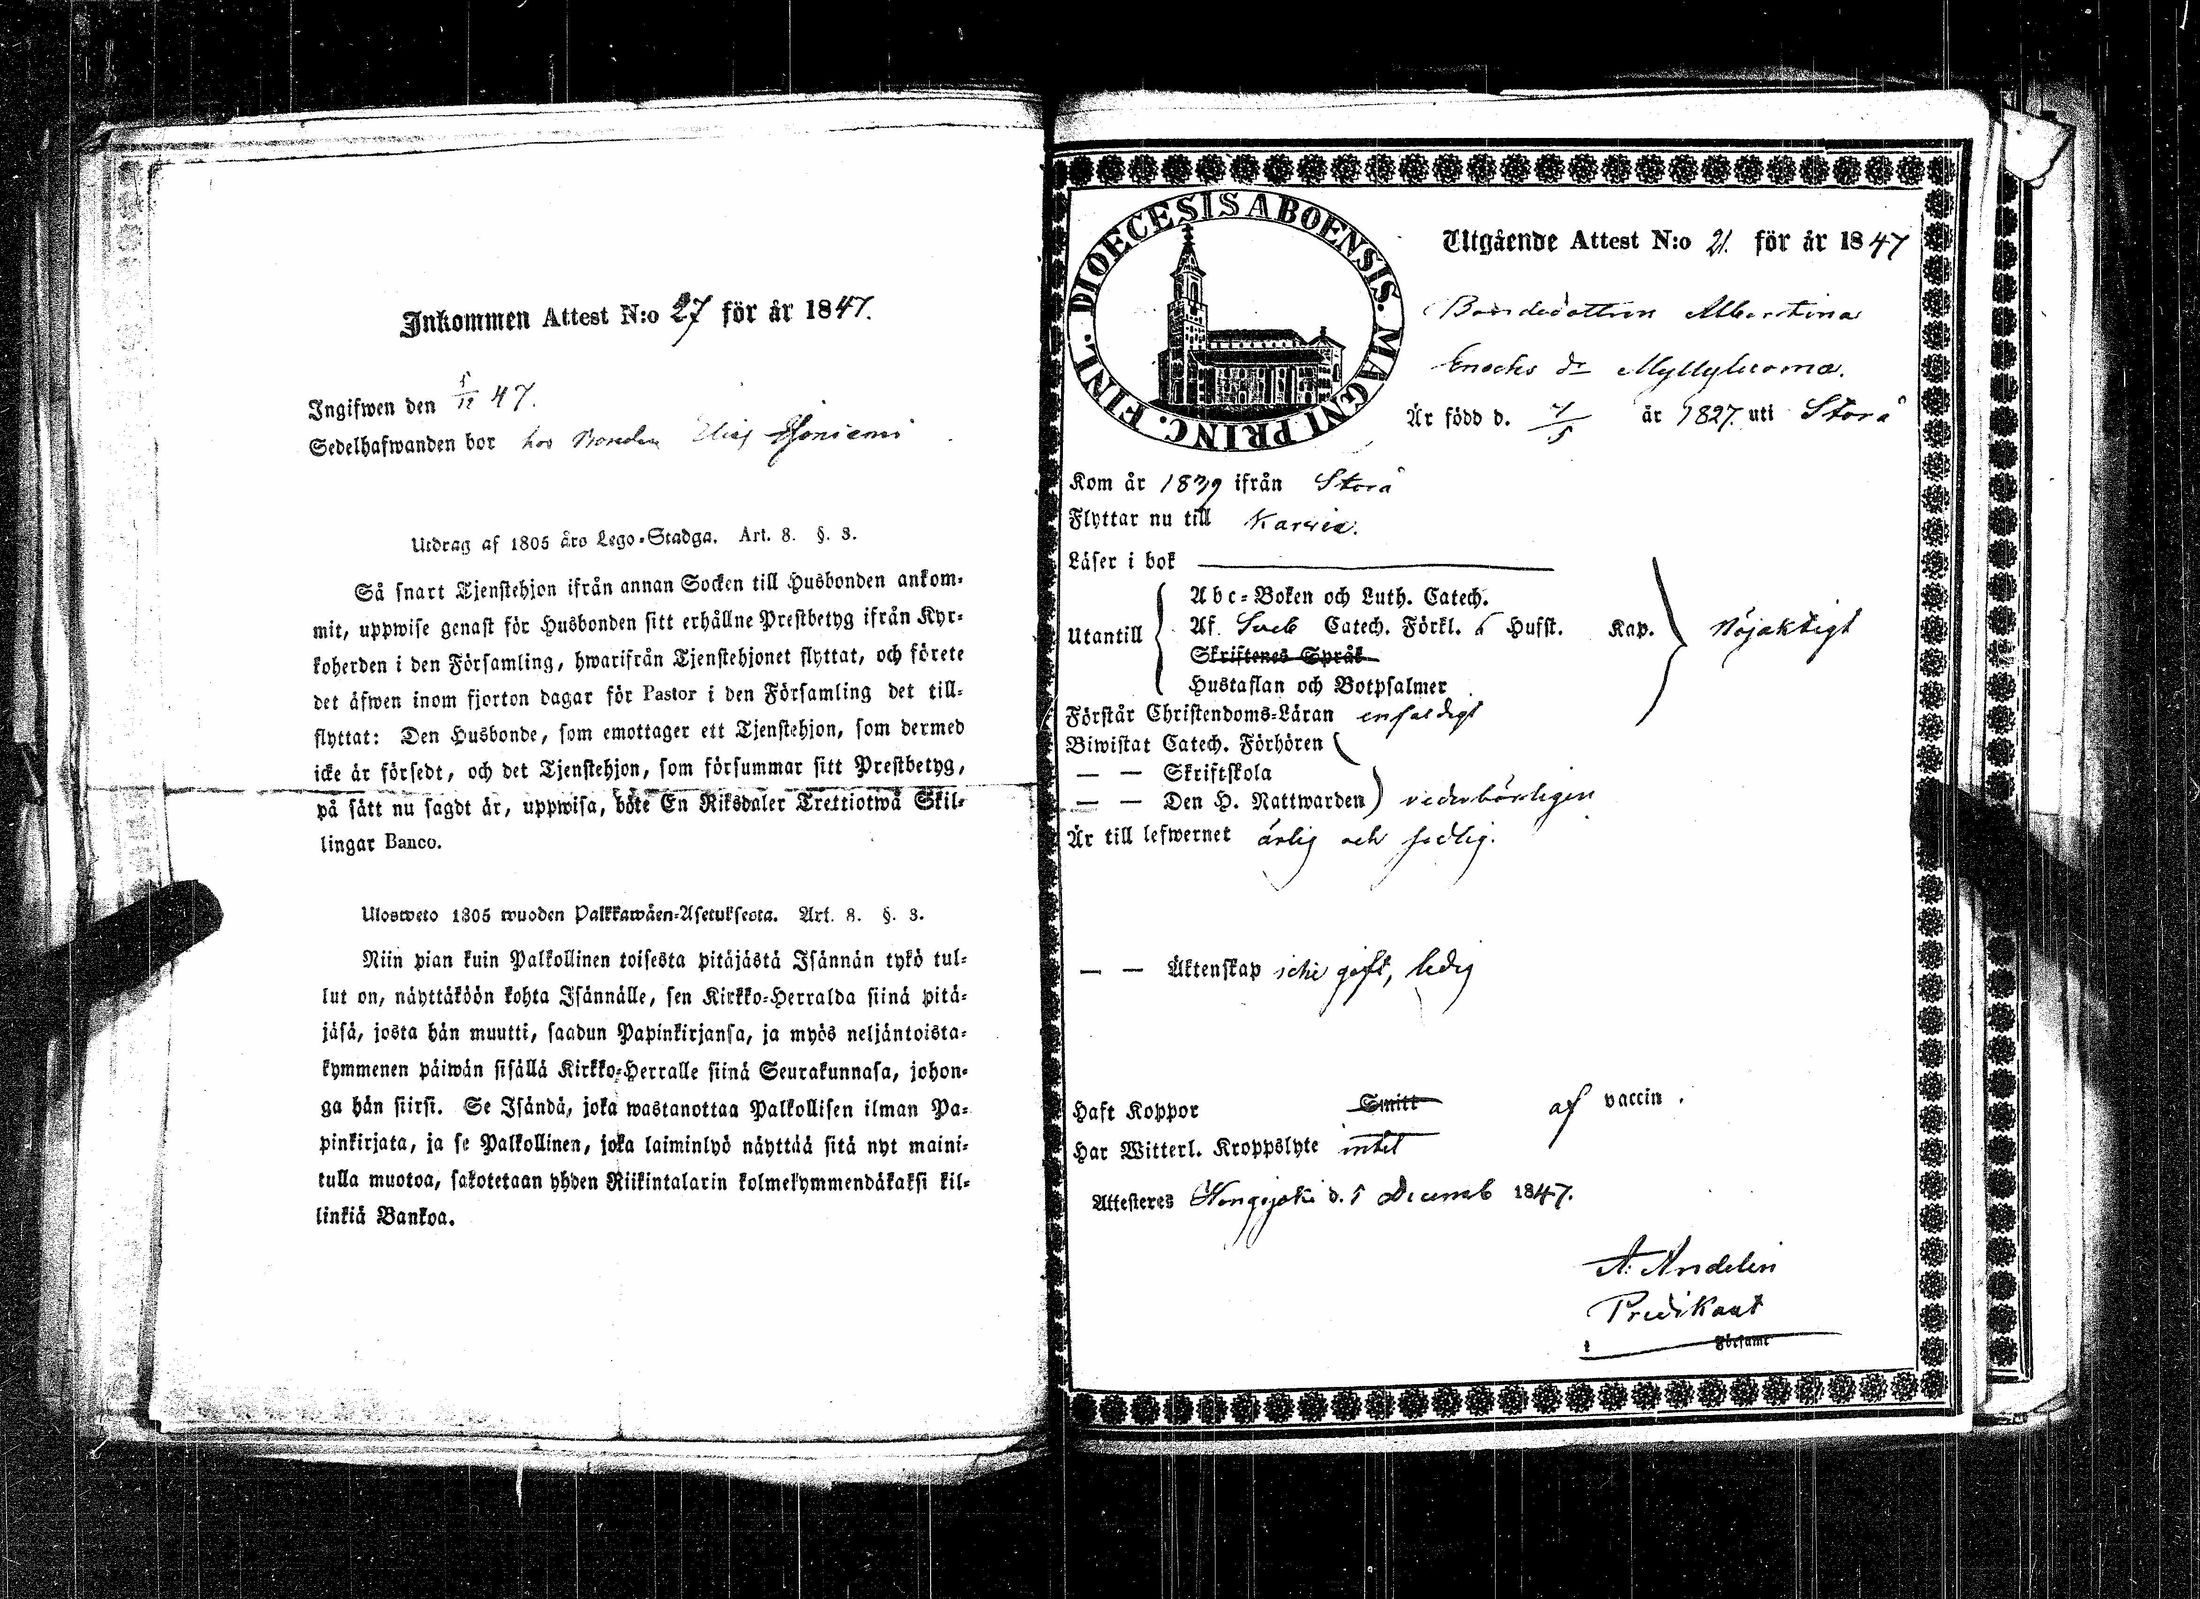 Inkommen Attest N:o 27 för år 1847.
Ingifwen den 5/12 47.
Sedelhafwanden bor hos Bonden
Utdrag af 1805 års Lego-Stadga. Art. 8. §. 3.
Så snart Tjenstehjon ifrån annan Socken till Husbonden ankom-
mit, uppwise genast för Husbonden sitt erhållne Prestbetyg ifrån Kyr-
koherden i den Församling, hwarifrån Tjenstehjonet flyttat, och förete
det äfwen inom fjorton dagar för Pastor i den Församling det till-
flyttat: Den Husbonde, som emottager ett Tjenstehjon, som dermed
icke är försedt, och det Tjenstehjon, som försummar sitt Prestbetyg,
på sätt nu sagdt är, uppwisa, böte En Riksdaler Trettiotwå Skil-
lingar Banco.
Ulosweto 1805 wuoden Palkkawäen-Asetuksesta. Art. 8. §. 3.
Niin pian kuin Palkollinen toisesta pitäjästä Isännän tykö tul-
lut on, näyttäköön kohta Isännälle, sen Kirkko-Herralda siinä pitä-
jäsä, josta hän muutti, saadun Papinkirjansa, ja myös neljäntoista-
kymmenen päiwän sisällä Kirkko-Herralle siinä Seurakunnasa, johon-
ga hän siirsi. Se Isändä, joka wastanottaa Palkollisen ilman Pa-
pinkirjata, ja se Palkollinen, joka laiminlyö näyttää sitä nyt maini-
tulla muotoa, sakotetaan yhden Riikintalarin kolmekymmendäkaksi kil-
linkiä Bankoa.
DIOECESIS ABOENSIS. MAGNI PRINC. FINL.
Utgående Attest N:o 21. för år 1847
Bondedottren Albertina
Enochs dr Myllyluoma.
Är född d. 4/5 år 1827. uti Storå
Kom år 1839 ifrån Storå
Flyttar nu till Karvia.
Läser i bok
Utantill
Abc-Boken och Luth. Catech.
Af Sveb Catech. Förkl. 6 Hufst. Kap.
Skriftenes Språk
Hustaflan och Botpsalmer
Nöjaktigt
Förstår Christendoms-Läran enfaldigt
Biwistat Catech. Förhören
— — Skriftskola
— — Den H. Nattwarden vederbörligen
Är till lefwernet ärlig och sedlig.
— — Äktenskap icke gift, ledig
Haft Koppor Smitt af vaccin.
Har Witterl. Kroppslyte intet
Attesteres Hongojoki d. 5 Decemb 1847.
A. Andelin
Predikant